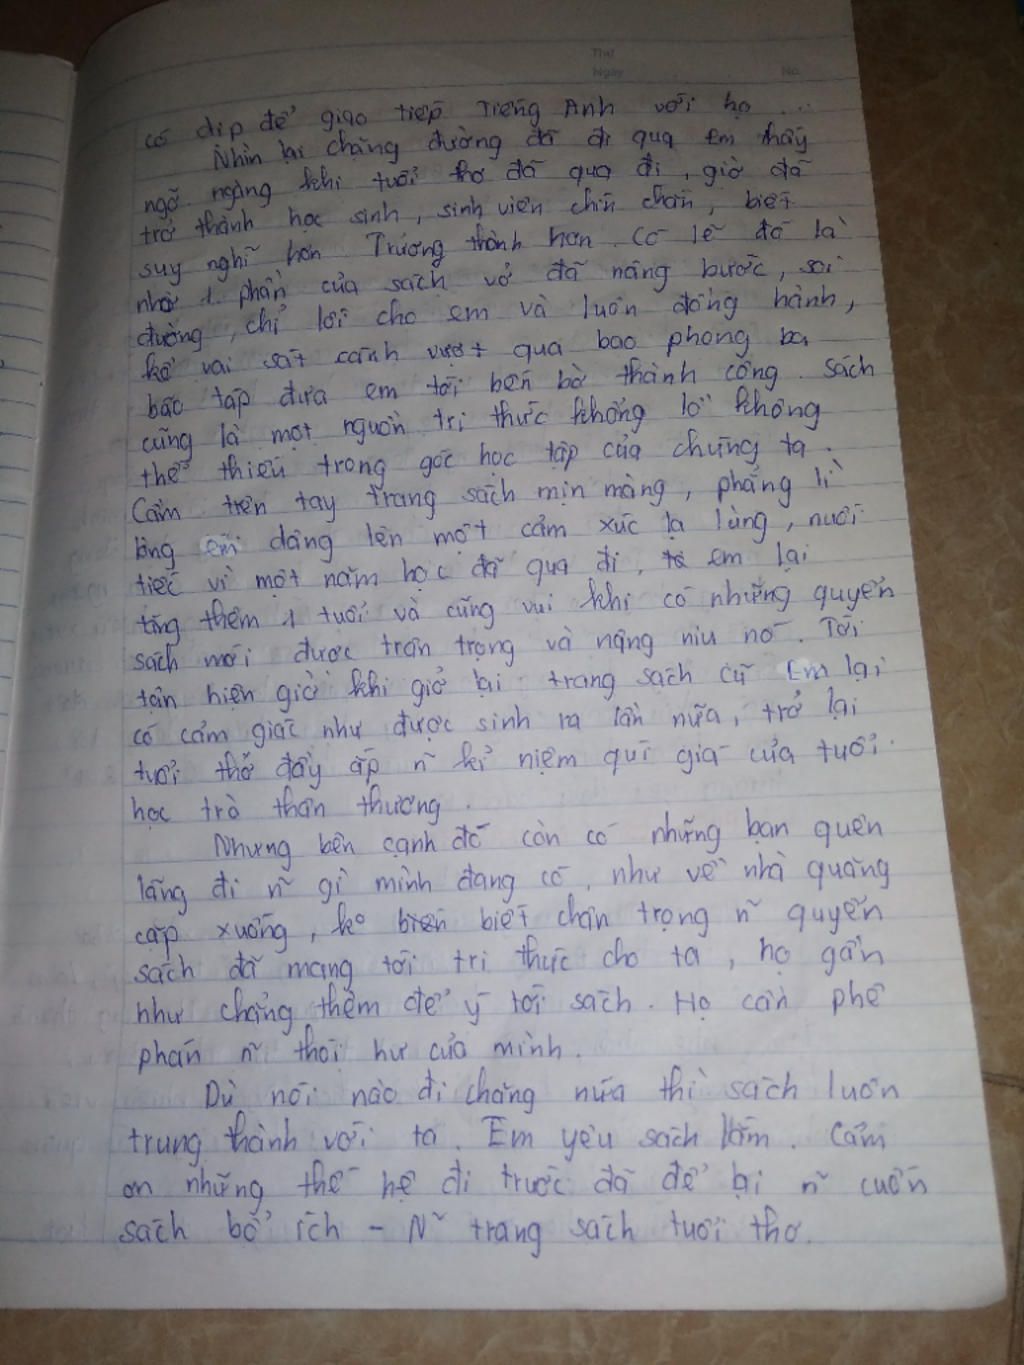 Thứ
Ngày No.
có dịp để giao tiếp Tiếng Anh với họ ...
Nhìn lại chặng đường đã đi qua em thấy
ngỡ ngàng khi tuổi thơ đã qua đi, giờ đã
trở thành học sinh, sinh viên chín chắn, biết
suy nghĩ hơn Trưởng thành hơn. Có lẽ đó là
nhờ 1 phần của sách vở đã nâng bước, soi
đường, chỉ lối cho em và luôn đồng hành,
kề vai sát cánh vượt qua bao phong ba
bão táp đưa em tới bến bờ thành công. Sách
cũng là một nguồn tri thức khổng lồ không
thể thiếu trong góc học tập của chúng ta.
Cầm trên tay trang sách mịn màng, phẳng lì
lòng em dâng lên một cảm xúc lạ lùng, nuối
tiếc vì một năm học đã qua đi, em lại
tăng thêm 1 tuổi và cũng vui khi có những quyển
sách mới được trân trọng và nâng niu nó. Tới
tận hiện giờ khi giở lại trang sách cũ Em lại
có cảm giác như được sinh ra lần nữa, trở lại
tuổi thơ đầy ắp n~ kỉ niệm quí giá của tuổi
học trò thân thương.
Nhưng bên cạnh đó còn có những bạn quên
lãng đi n~ gì mình đang có, như về nhà quăng
cặp xuống, ko biết chân trọng n~ quyển
sách đã mang tới tri thức cho ta, họ gần
như chẳng thèm để ý tới sách. Họ cần phê
phán n~ thói hư của mình.
Dù nói nào đi chăng nữa thì sách luôn
trung thành với ta. Em yêu sách lắm. Cảm
ơn những thế hệ đi trước đã để lại n~ cuốn
sách bổ ích - N~ trang sách tuổi thơ.